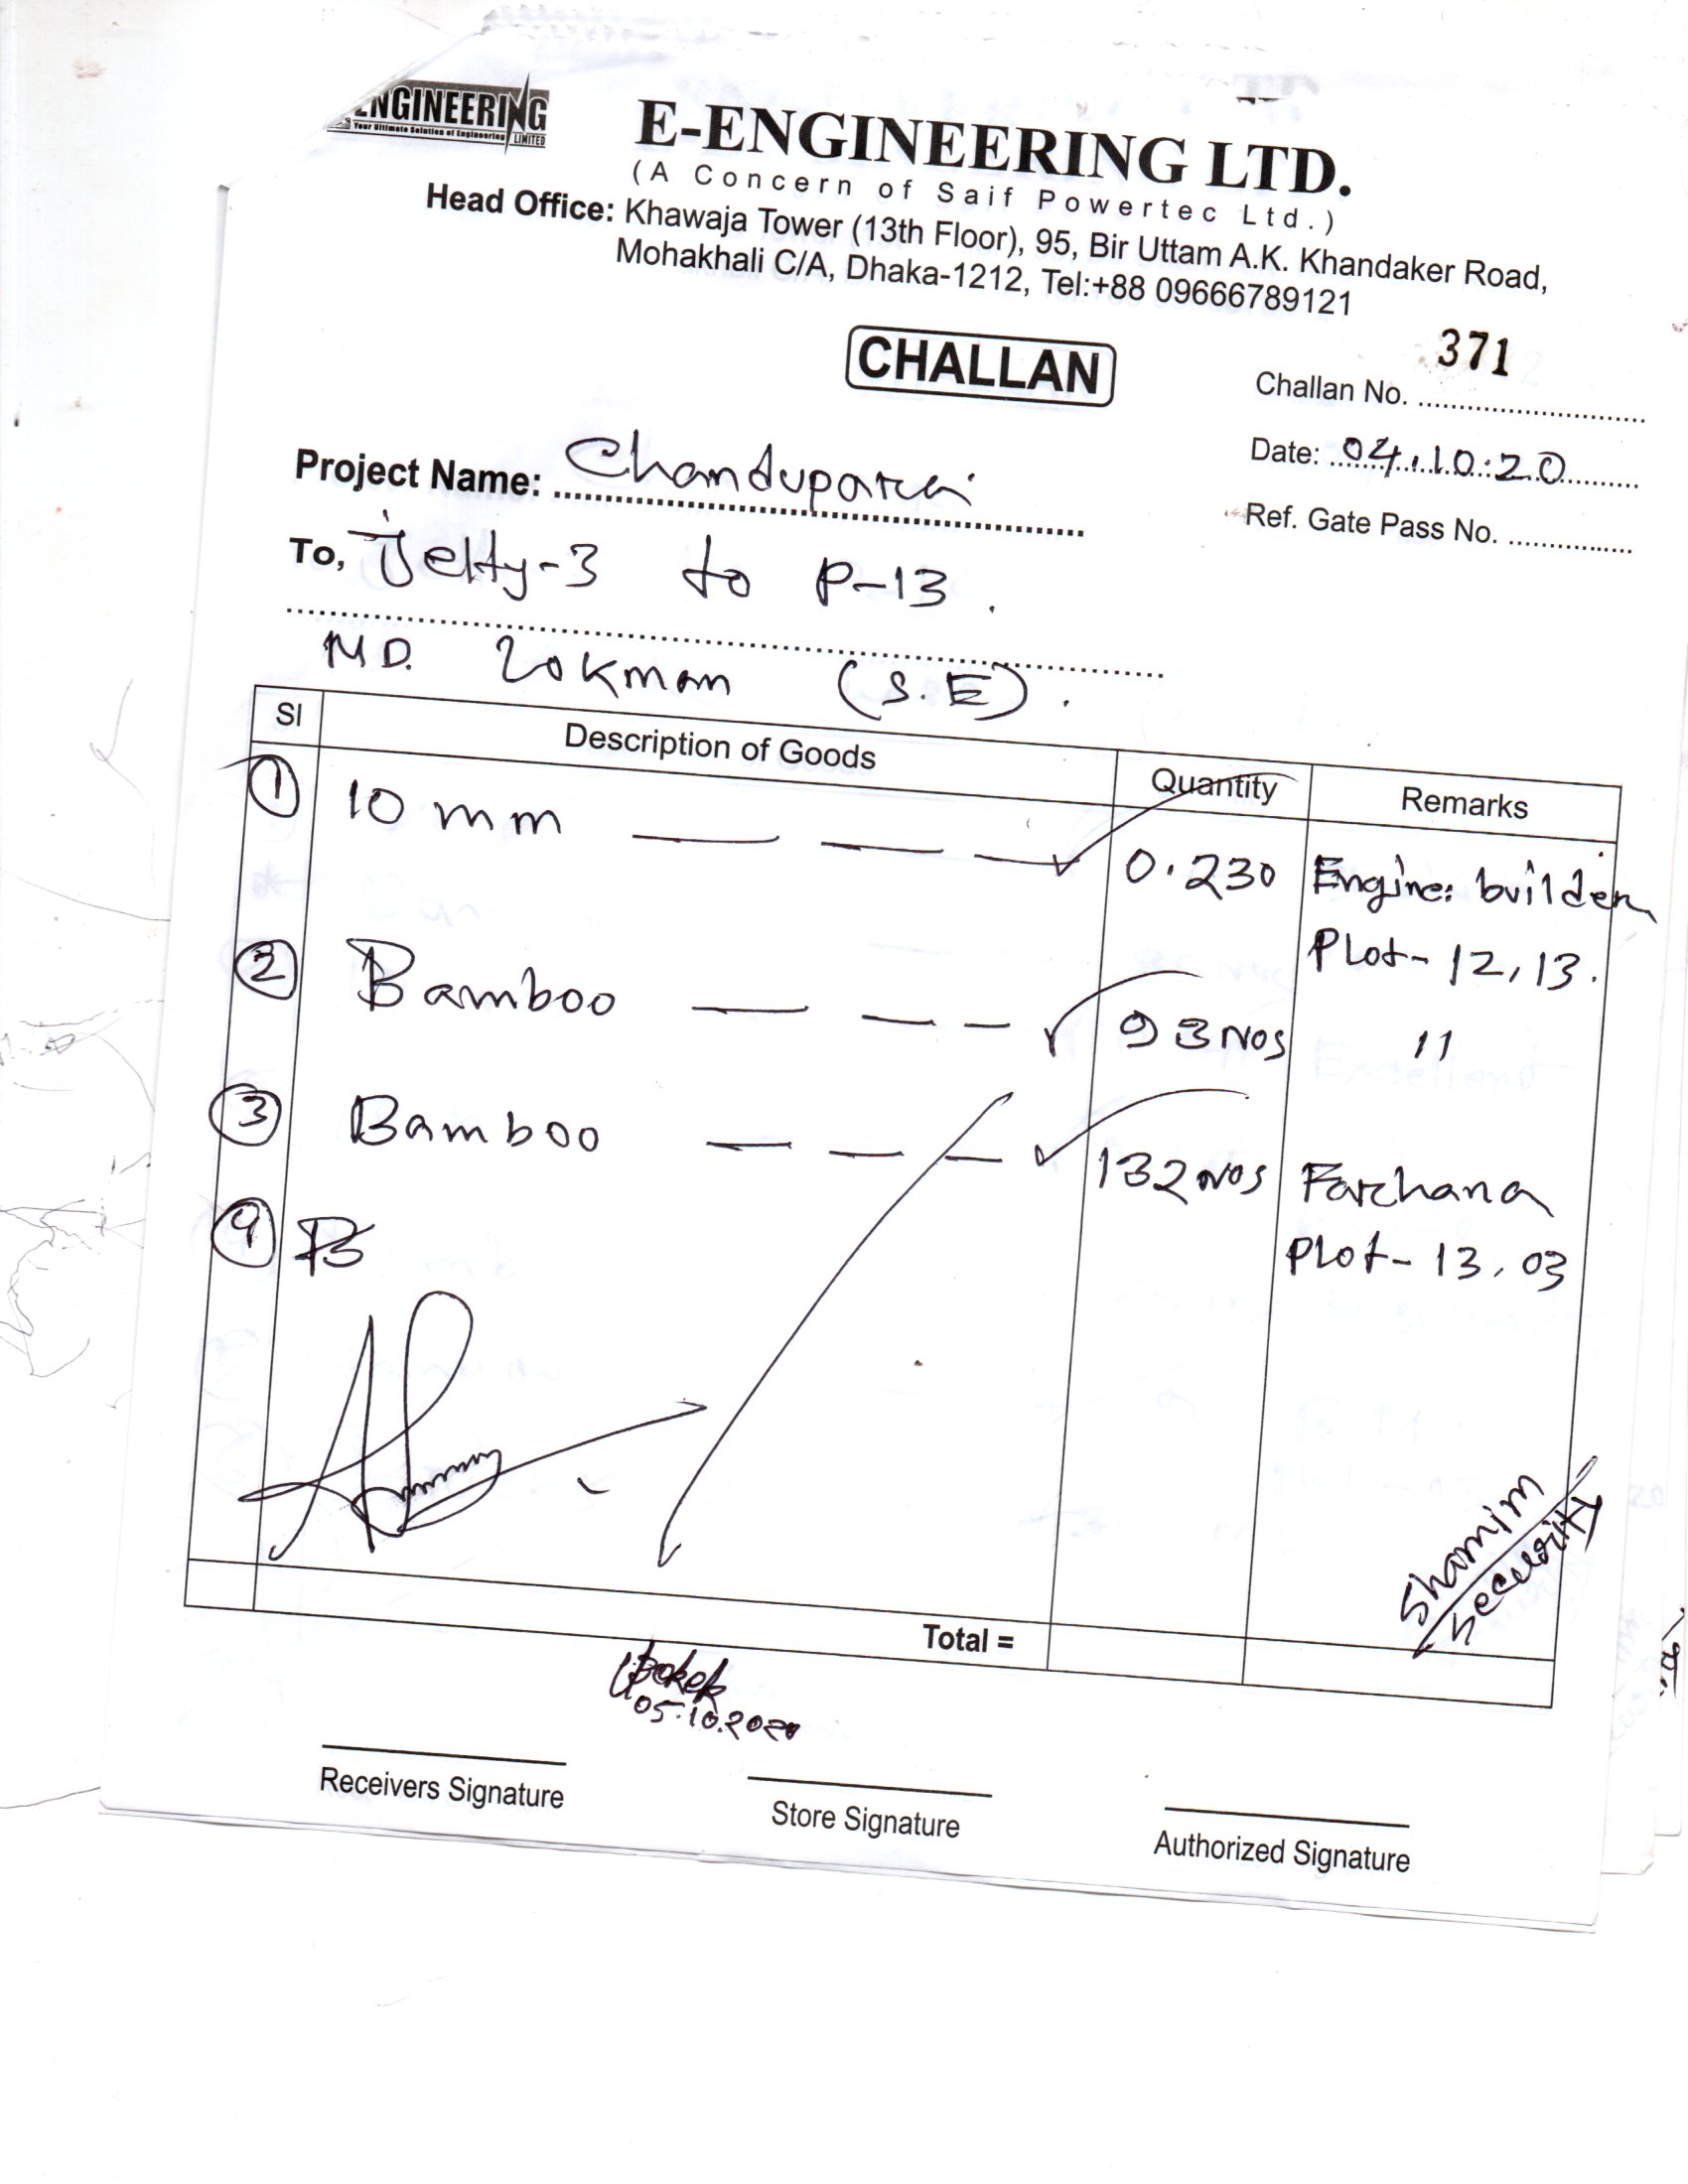 ENGINEERING
Your Ultimate Solution of Engineering
LIMITED
E-ENGINEERING LTD.
(A Concern of Saif Powertec Ltd.)
Head Office: Khawaja Tower (13th Floor), 95, Bir Uttam A.K. Khandaker Road,
Mohakhali C/A, Dhaka-1212, Tel:+88 09666789121
CHALLAN
371
Challan No.
Date: 04.10.20
Ref. Gate Pass No.
Project Name:
To, jetty-3 to P-13.
MD. Lokman (S.E).
Sl Description of Goods Quantity Remarks
1 10 mm 0.230 Engine: builder
Plot- 12, 13.
2 Bamboo 93 Nos 11
3 Bamboo 132 Nos Farhana
Plot- 13, 03
4 B
Shamim
Security
Total =
05.10.2020
Receivers Signature
Store Signature
Authorized Signature